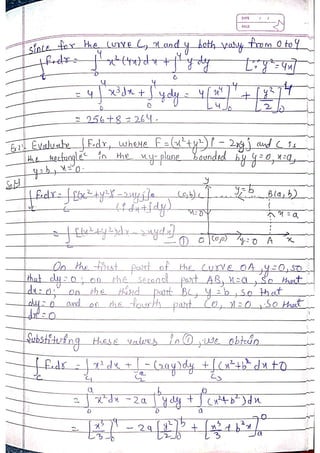 DATE
PAGE
since for the curve C, x and y both vary from 0 to 4
∫_C F.dr = ∫_0^4 x²(4x) dx + ∫_0^4 y dy [∵ y² = 4x]
= 4 ∫_0^4 x³dx + ∫_0^4 y dy = 4 [x⁴/4]_0^4 + [y²/2]_0^4
= 256 + 8 = 264.
Evaluate ∫_C F.dr, where F = (x²+y²) î - 2xy ĵ and C is
the rectangle in the xy-plane bounded by y=0, x=a,
y=b, x=0.
∫_C F.dr = ∫_C [(x²+y²)î - 2xyĵ].
(î dx + ĵ dy)
= ∫_C [(x²+y²)dx - 2xydy] - ①
y
C(0,b) y=b B(a,b)
x=0 x=a
O (0,0) y=0 A x
On the first part of the curve OA, y=0, so
that dy=0; on the second part AB, x=a, so that
dx=0; on the third part BC, y=b, so that
dy=0 and on the fourth part CO, x=0, so that
dx=0
Substituting these values in ①, we obtain
∫_C F.dr = ∫_{C1} x²dx + ∫_{C2} -(2ay)dy + ∫_{C3} (x²+b²)dx + 0
= ∫_0^a x²dx - 2a ∫_0^b y dy + ∫_a^0 (x²+b²)dx
= [x³/3]_0^a - 2a [y²/2]_0^b + [x³/3 + b²x]_a^0